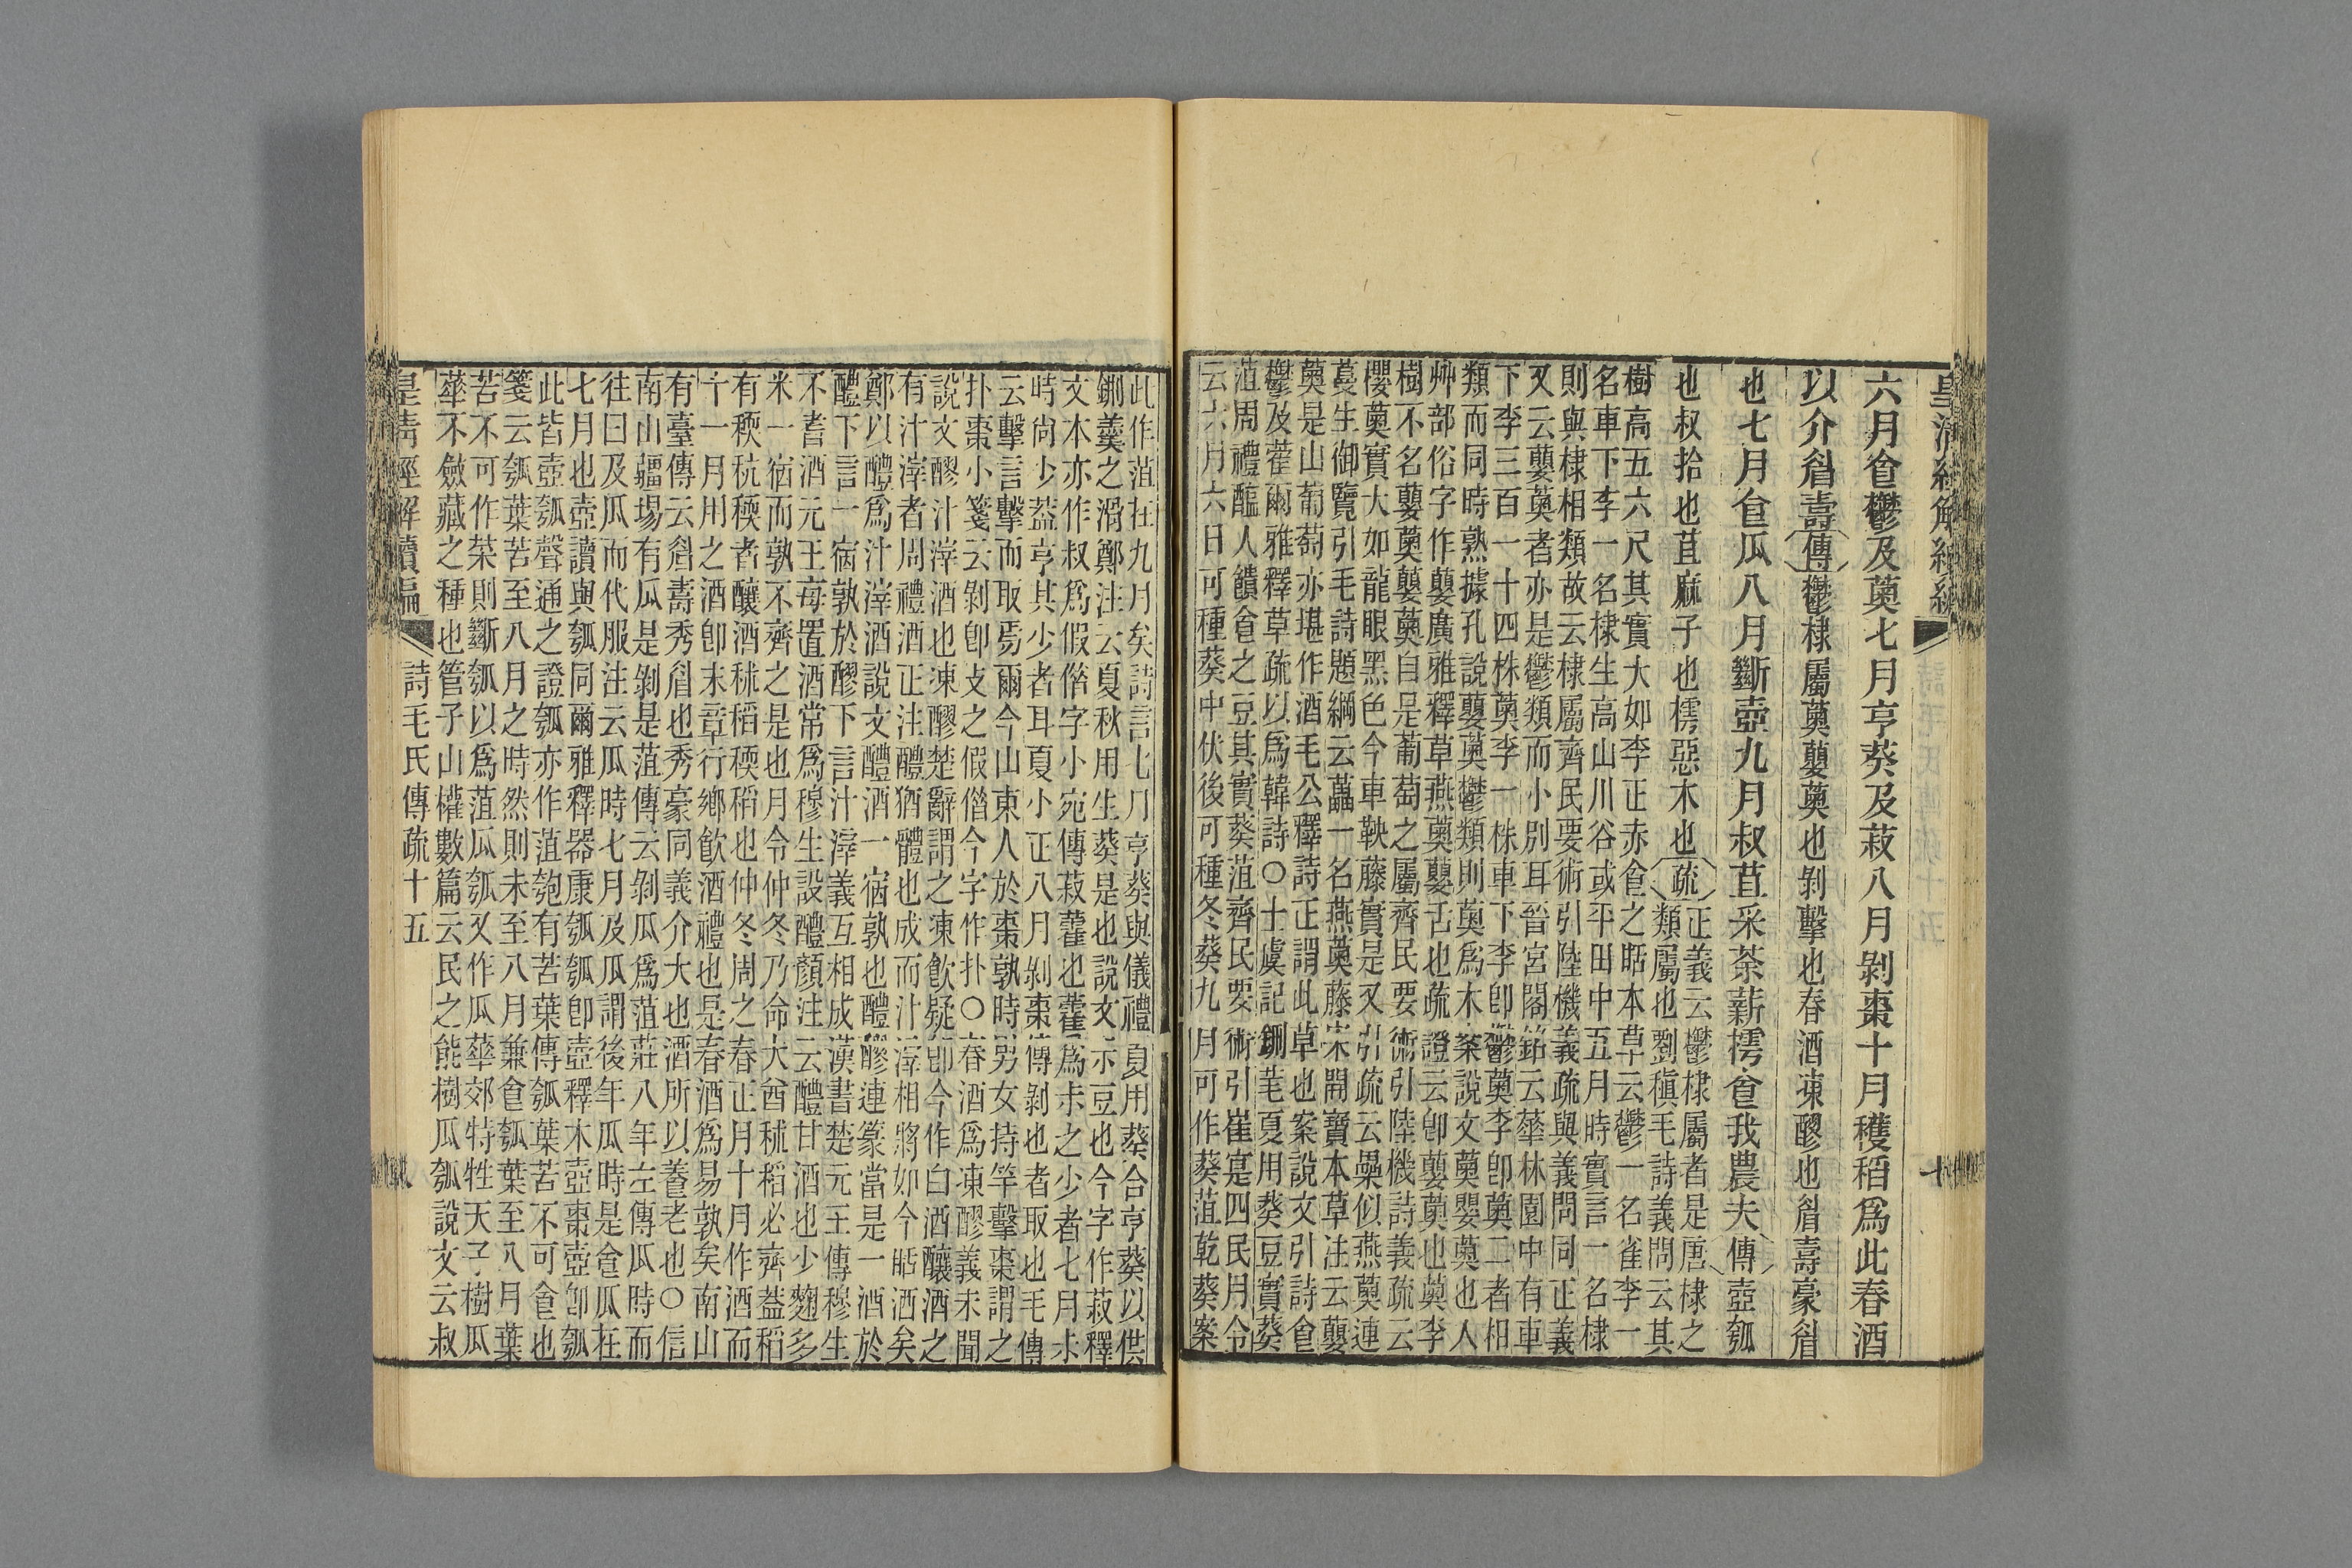 皇清經解續編
六月食鬱及薁七月亨葵及菽八月剝棗十月穫稻爲此春酒
以介眉壽傳鬱棣屬薁蘡薁也剝擊也春酒凍醪也眉壽豪眉
也七月食瓜八月斷壺九月叔苴采荼薪樗食我農夫傳壺瓠
也叔拾也苴麻子也樗惡木也疏正義云鬱棣屬者是唐棣之
類屬也劉稹毛詩義問云其
樹高五六尺其實大如李正赤食之甛本草云鬱一名雀李一
名車下李一名棣生高山川谷或平田中五月時實言一名棣
則與棣相類故云棣屬齊民要術引陸機義疏與義問同正義
又云蘡薁者亦是鬱類而小別耳晉宮閣銘云華林園中有車
下李三百一十四株薁李一株車下李卽鬱薁李卽薁二者相
類而同時熟據孔說蘡薁鬱類則薁爲木桊說文薁嬰薁也人
艸部俗字作蘡廣雅釋草燕薁蘡舌也疏證云卽蘡薁也薁李
樹不名蘡薁蘡薁自是葡萄之屬齊民要術引陸機詩義疏云
櫻薁實大如龍眼黑色今車鞅藤實是又引疏云櫐似燕薁連
蔓生御覽引毛詩題綱云藟一名燕薁藤宋開寶本草注云蘡
薁是山葡萄亦堪作酒毛公釋詩正謂此草也案說文引詩食
鬱及雚爾雅釋草疏以爲韓詩○士虞記鉶芼夏用葵豆實葵
菹周禮醢人饋食之豆其實葵菹齊民要術引崔寔四民月令
云六月六日可種葵中伏後可種冬葵九月可作葵菹乾葵案
此作菹在九月矣詩言七月亨葵與儀禮夏用葵合亨葵以供
鉶羹之滑鄭注云夏秋用生葵是也說文尗豆也今字作菽釋
文本亦作叔爲假偺字小宛傳菽藿也藿爲尗之少者七月尗
時尙少蓋亨其少者耳夏小正八月剝棗傳剝也者取也毛傳
云擊言擊而取焉爾今山東人於棗孰時男女持竿擊棗謂之
扑棗小箋云剝卽攴之假偺今字作扑○春酒爲凍醪義未聞
說文醪汁滓酒也凍醪楚辭謂之凍飮疑卽今作白酒釀酒之
有汁滓者周禮酒正注醴猶體也成而汁滓相將如今甛酒矣
鄭以醴爲汁滓酒說文醴酒一宿孰也醴醪連篆當是一酒於
醴下言一宿孰於醪下言汁滓義互相成漢書楚元王傳穆生
不耆酒元王每置酒常爲穆生設醴顏注云醴甘酒也少麴多
米一宿而孰不齊之是也月令仲冬乃命大酋秫稻必齊蓋稻
有稬秔稬者釀酒秫稻稬稻也仲冬周之春正月十月作酒而
十一月用之酒卽末章行鄉飮酒禮也是春酒爲易孰矣南山
有臺傳云眉壽秀眉也秀豪同義介大也酒所以養老也○信
南山疆埸有瓜是剝是菹傳云剝瓜爲菹莊八年左傳瓜時而
往曰及瓜而代服注云瓜時七月及瓜謂後年瓜時是食瓜在
七月也壺讀與瓠同爾雅釋器康瓠瓠卽壺釋木壺棗壺卽瓠
此皆壺瓠聲通之證瓠亦作匏匏有苦葉傳瓠葉苦不可食也
箋云瓠葉苦至八月之時然則未至八月兼食瓠葉至八月葉
苦不可作菜則斷瓠以爲菹瓜瓠又作瓜華郊特牲天子樹瓜
華不斂藏之種也管子山權數篇云民之能樹瓜瓠說文云叔
皇淸經解續編 詩毛氏傳疏十五